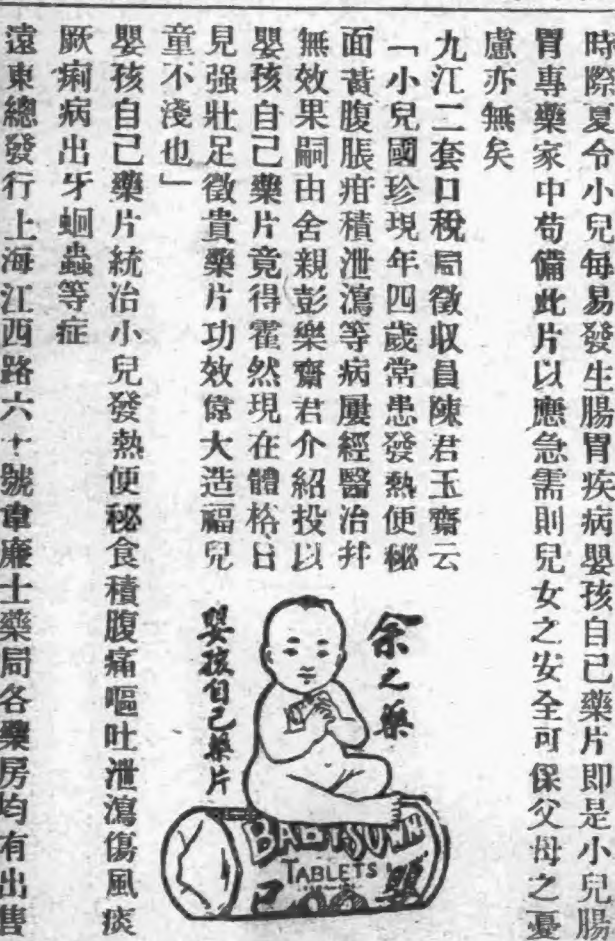 時際夏令小兒每易發生腸胃疾病嬰孩自己藥片即是小兒腸
胃專藥家中苟備此片以應急需則兒女之安全可保父母之憂
慮亦無矣
九江二套口稅局徵収員陳君玉齋云
「小兒國珍現年四歲常患發熱便秘
面黃腹脹疳積泄瀉等病屢經醫治并
無效果嗣由舍親彭樂齋君介紹投以
嬰孩自己藥片竟得霍然現在體格日
見强壯足徵貴藥片功效偉大造福兒
童不淺也」
嬰孩自己藥片統治小兒發熱便秘食積腹痛嘔吐泄瀉傷風痰
厥痢病出牙蛔蟲等症
遠東總發行上海江西路六十號韋廉士藥局各藥房均有出售
余之藥
嬰孩自己藥片
BABY'S OWN
TABLETS
嬰
己